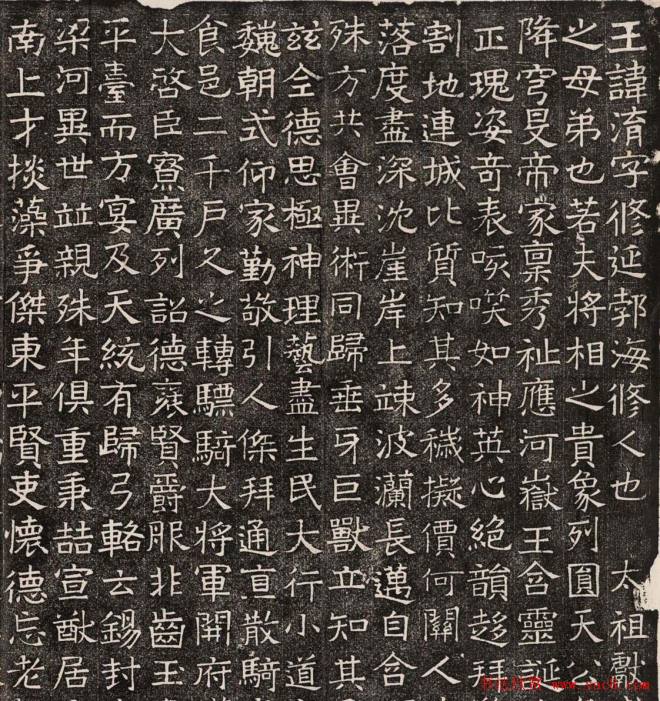 王諱淯字脩延郣海脩人也 太祖獻
之母弟也若夫將相之貴象列圓天公
降穹旻帝家稟秀祉應河嶽王含靈誕
正瑰姿奇表咳唉如神英心絕韻趍拜
割地連城比質知其多穢擬價何關人
落度盡深沈崖岸上竦波瀾長邁自含
殊方共會異術同歸垂牙巨獸立知其
茲全德思極神理藝盡生民大行小道
魏朝式仰家勤敬引人傑拜通直散騎
食邑二千戶久之轉驃騎大將軍開府
大啓臣寮廣列詔德褒賢爵服非齒玉
平臺而方宴及天統有歸弓輅云錫封
梁河異世並親殊年俱重秉喆宣猷居
南上才掞藻爭傑東平賢吏懷德忘老
书法欣赏 www.yac8.com